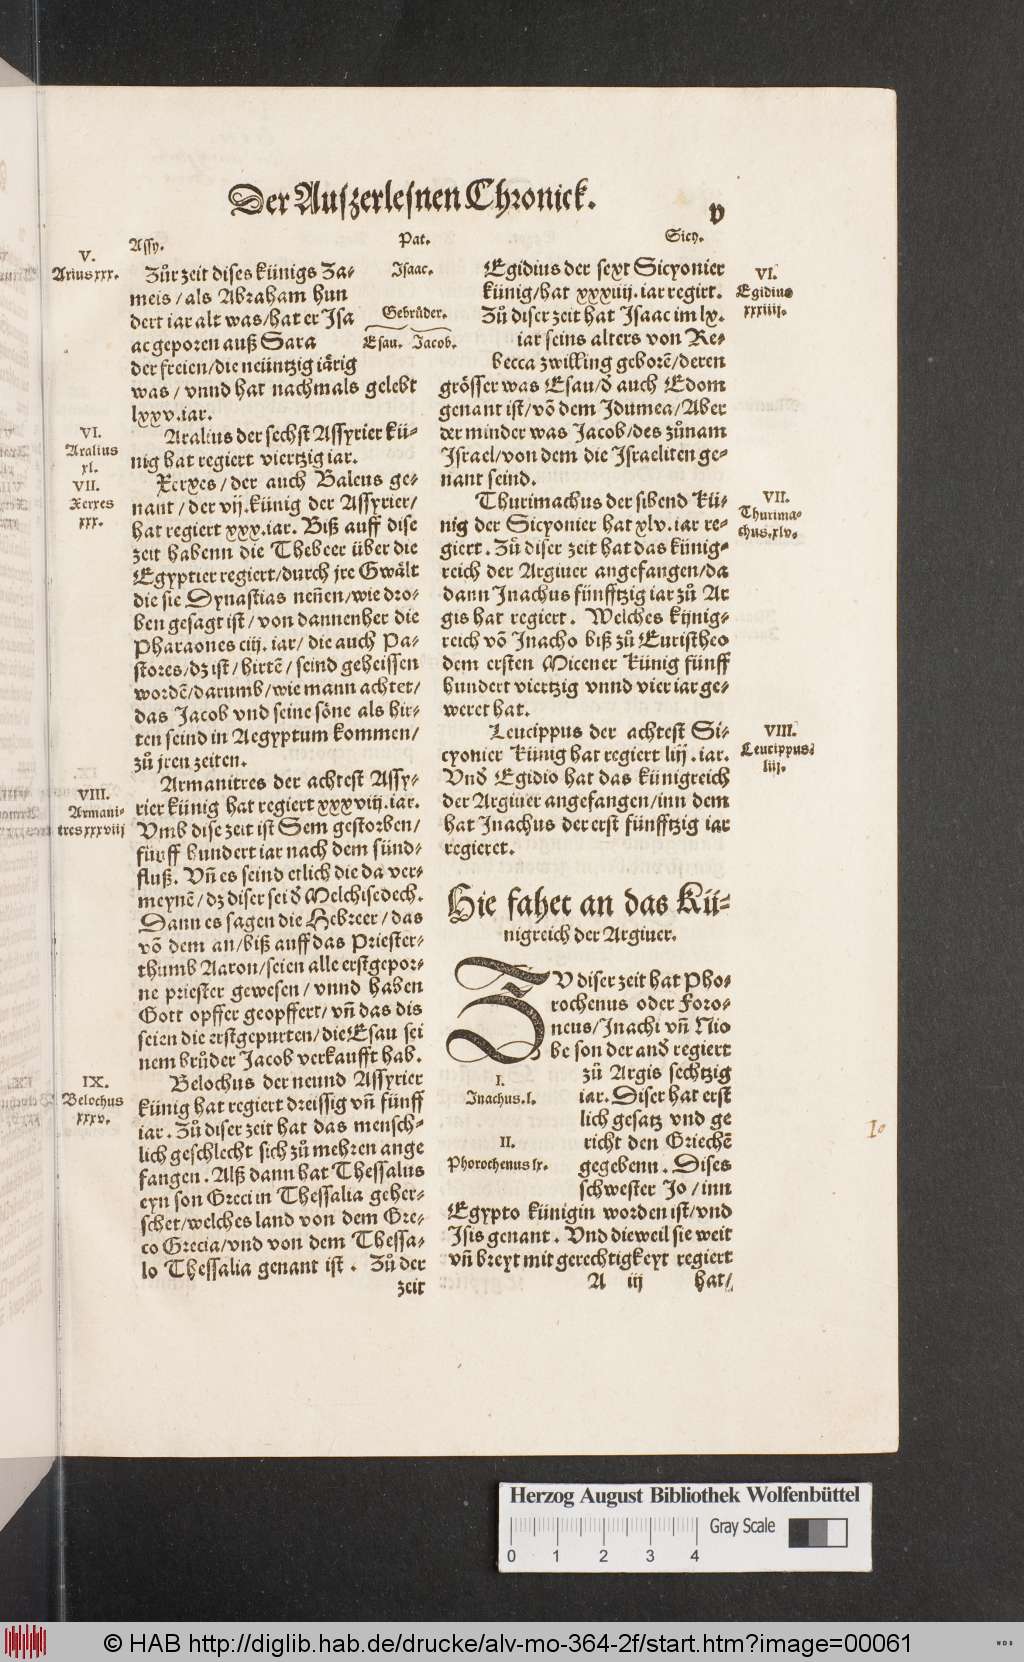 Der Auſzerleſnen Chronick.
v
Aſſy.
Pat.
Sicy.
V.
Arius xxx.
Zůr zeit diſes künigs Za-
meis / als Abraham hun
dert iar alt was/hat er Iſa
ac geporen auß Sara
der freien/die neüntzig iärig
was / vnnd hat nachmals gelebt
lxxv.iar.
VI.
Aralius
xl.
Aralius der ſechſt Aſſyrier kü-
nig hat regiert viertzig iar.
VII.
Xerxes
xxx.
Xerxes / der auch Baleus ge-
nant / der vij.künig der Aſſyrier/
hat regiert xxx.iar. Biß auff diſe
zeit habenn die Thebeer über die
Egyptier regiert/durch jre Gwält
die ſie Dynaſtias neñen/wie dro-
ben geſagt iſt/ von dannenher die
Pharaones ciij. iar/ die auch Pa-
ſtores/dz iſt/ hirtẽ/ ſeind geheiſſen
wordẽ/darumb/wie mann achtet/
das Jacob vnd ſeine ſöne als hir-
ten ſeind in Aegyptum kommen/
zů jren zeiten.
VIII.
Armani-
tres xxxviij
Armanitres der achteſt Aſſy-
rier künig hat regiert xxxviij.iar.
Vmb diſe zeit iſt Sem geſtorben/
fünff hundert iar nach dem ſünd-
fluß. Vñ es ſeind etlich die da ver-
meynẽ/ dz diſer ſei đ Melchiſedech.
Dann es ſagen die Hebreer / das
võ dem an/biß auff das Prieſter-
thumb Aaron/ſeien alle erſtgepor-
ne prieſter geweſen / vnnd haben
Gott opffer geopffert/ vñ das dis
ſeien die erſtgepurten/die Eſau ſei
nem brůder Jacob verkaufft hab.
IX.
Belochus
xxxv.
Belochus der neund Aſſyrier
künig hat regiert dreiſſig vñ fünff
iar. Zů diſer zeit hat das menſch-
lich geſchlecht ſich zů mehren ange
fangen. Alß dann hat Theſſalus
eyn ſon Greci in Theſſalia geher-
ſchet/welches land von dem Gre-
co Grecia/vnd von dem Theſſa-
lo Theſſalia genant iſt. Zů der
zeit
Iſaac.
Gebrůder.
Eſau. Jacob.
Egidius der ſext Sicyonier
künig/hat xxxiiij.iar regirt.
Zů diſer zeit hat Iſaac im lx.
iar ſeins alters von Re-
becca zwilling geborẽ/deren
gröſſer was Eſau/đ auch Edom
genant iſt/võ dem Idumea/Aber
der minder was Jacob/des zůnam
Iſrael/von dem die Iſraeliten ge-
nant ſeind.
VI.
Egidius
xxxiiij.
Thurimachus der ſibend Kü-
nig der Sicyonier hat xlv.iar re-
giert. Zů diſer zeit hat das künig-
reich der Argiuer angefangen/da
dann Inachus fünfftzig iar zů Ar
gis hat regiert. Welches künig-
reich võ Inacho biß zů Euriſtheo
dem erſten Micener Künig fünff
hundert viertzig vnnd vier iar ge-
weret hat.
VII.
Thurima-
chus.xlv.
Leucippus der achteſt Si-
cyonier Künig hat regiert liij.iar.
Vnđ Egidio hat das künigreich
der Argiuer angefangen/inn dem
hat Inachus der erſt fünfftzig iar
regieret.
VIII.
Leucippus
liij.
Hie fahet an das Kü-
nigreich der Argiuer.
ZV diſer zeit hat Pho-
rochenus oder Foro-
neus/Inachi vñ Nio
be ſon der anđ regiert
zů Argis ſechtzig
iar. Diſer hat erſt
lich geſatz vnd ge
richt den Griechẽ
gegebenn. Diſes
ſchweſter Jo / inn
Egypto künigin worden iſt/vnd
Iſis genant. Vnd dieweil ſie weit
vñ breyt mit gerechtigkeyt regiert
I.
Inachus.l.
II.
Phorochenus lx.
A iij
hat/
Io
Herzog August Bibliothek Wolfenbüttel
Gray Scale
0 1 2 3 4
© HAB http://diglib.hab.de/drucke/alv-mo-364-2f/start.htm?image=00061